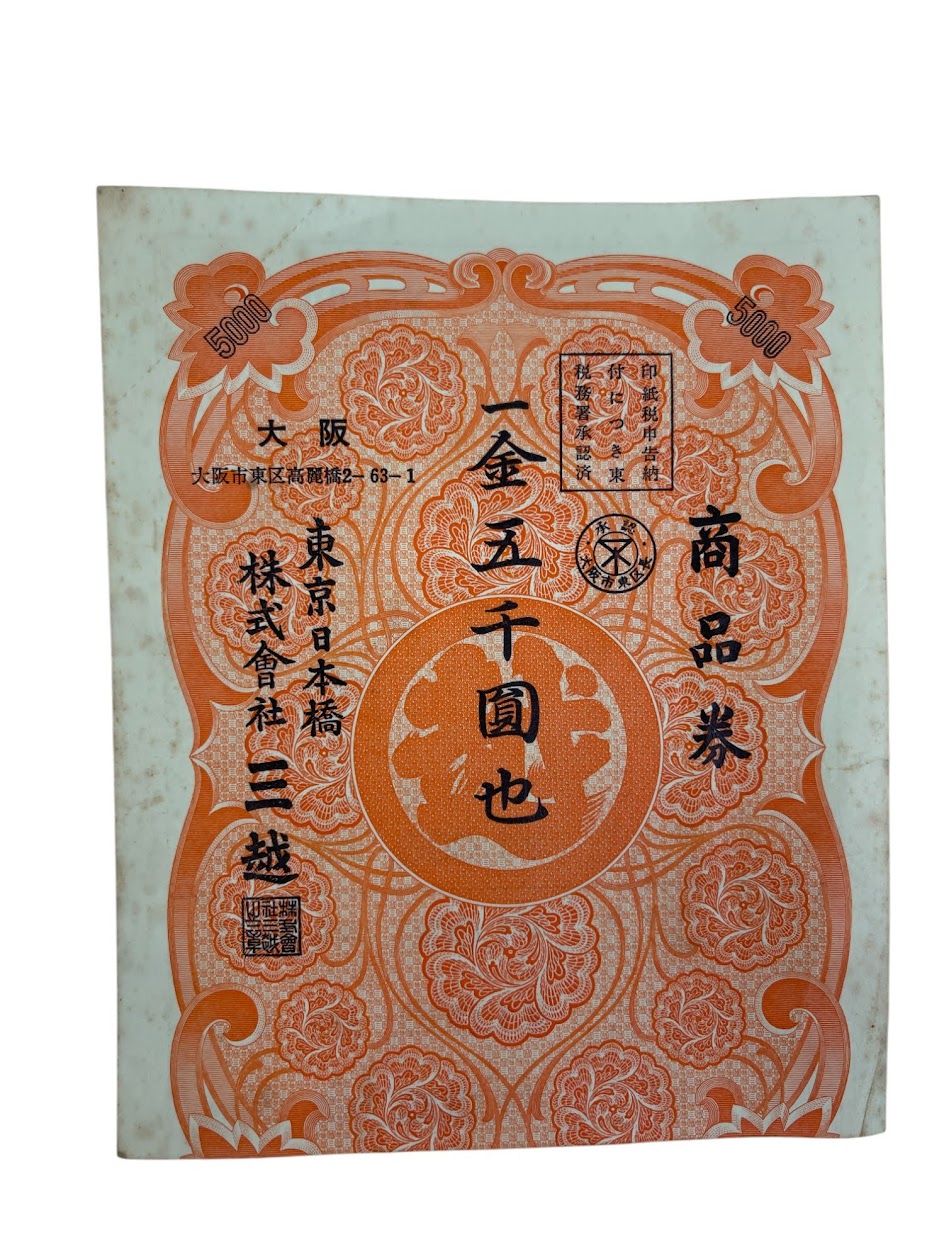 5000
5000
印紙税申告納
付につき東
税務署承認済
商品券
承認
大阪市東区長
一金五千圓也
大阪
大阪市東区高麗橋2-63-1
東京日本橋
株式會社三越
株式會
社三越
之章